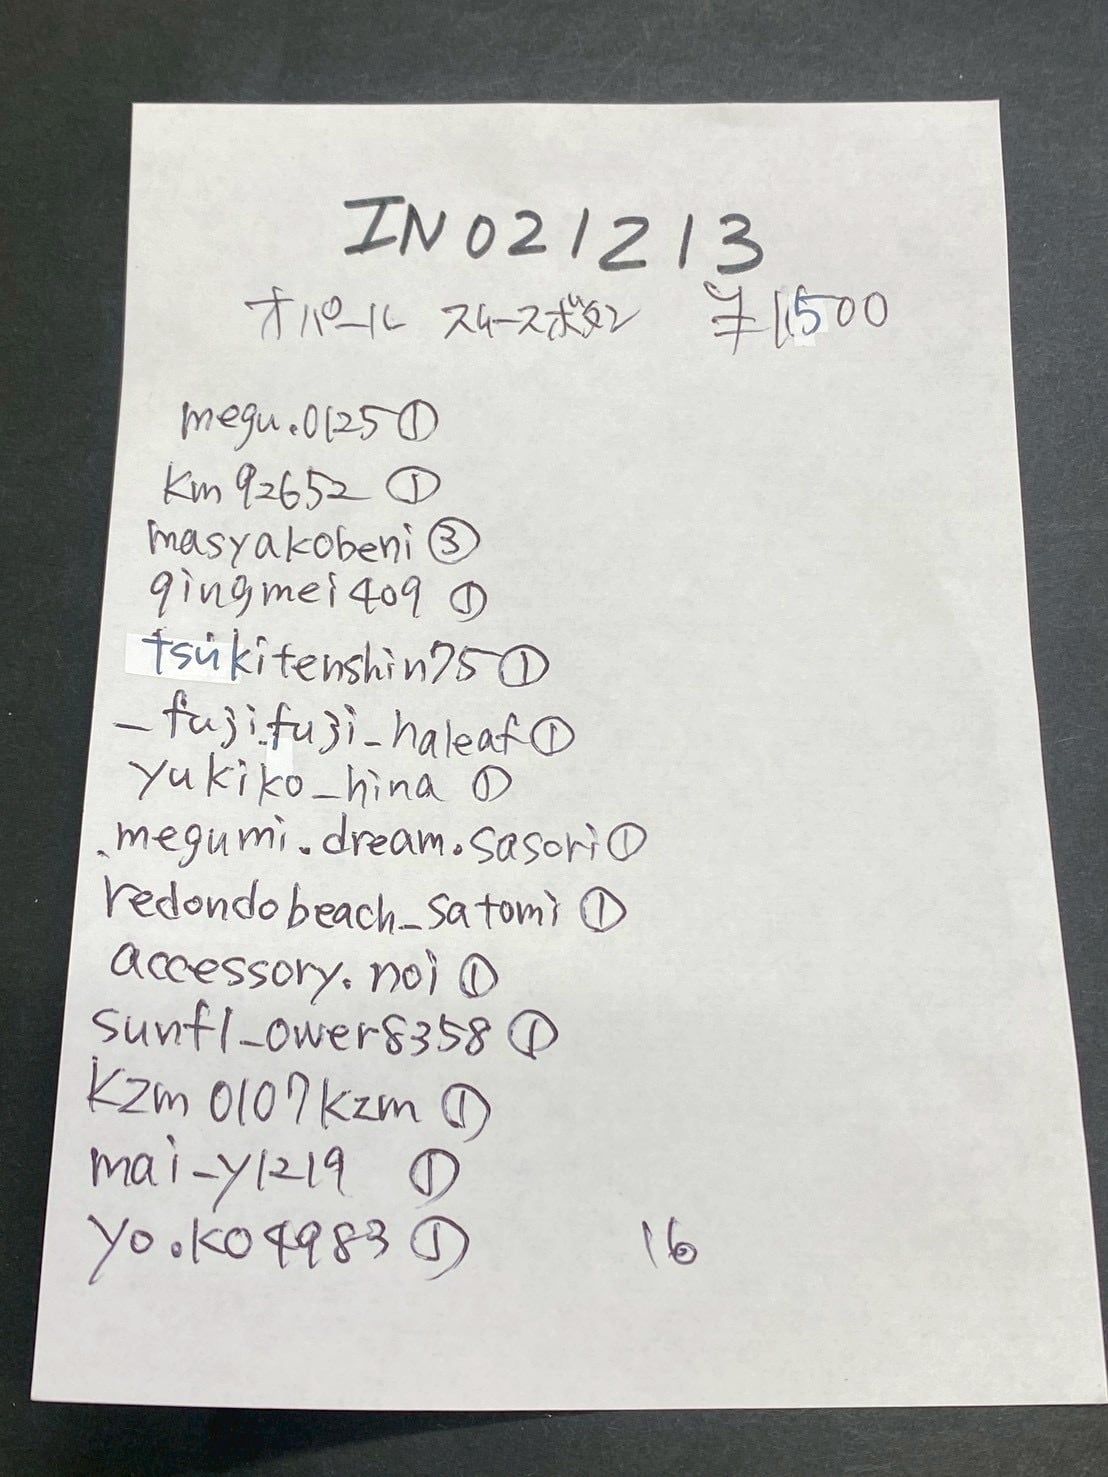 IN021213
オパール スムースボタン ¥11500
megu.0125①
km92652 ①
masyakobeni③
qingmei409 ①
tsukitenshin75①
_fuji.fuji_haleaf①
yukiko_hina ①
.megumi.dream.sasori①
redondobeach_satomi①
accessory.noi①
sunfl_ower8358①
kzm0107kzm①
mai_y1219 ①
yo.ko4983① 16